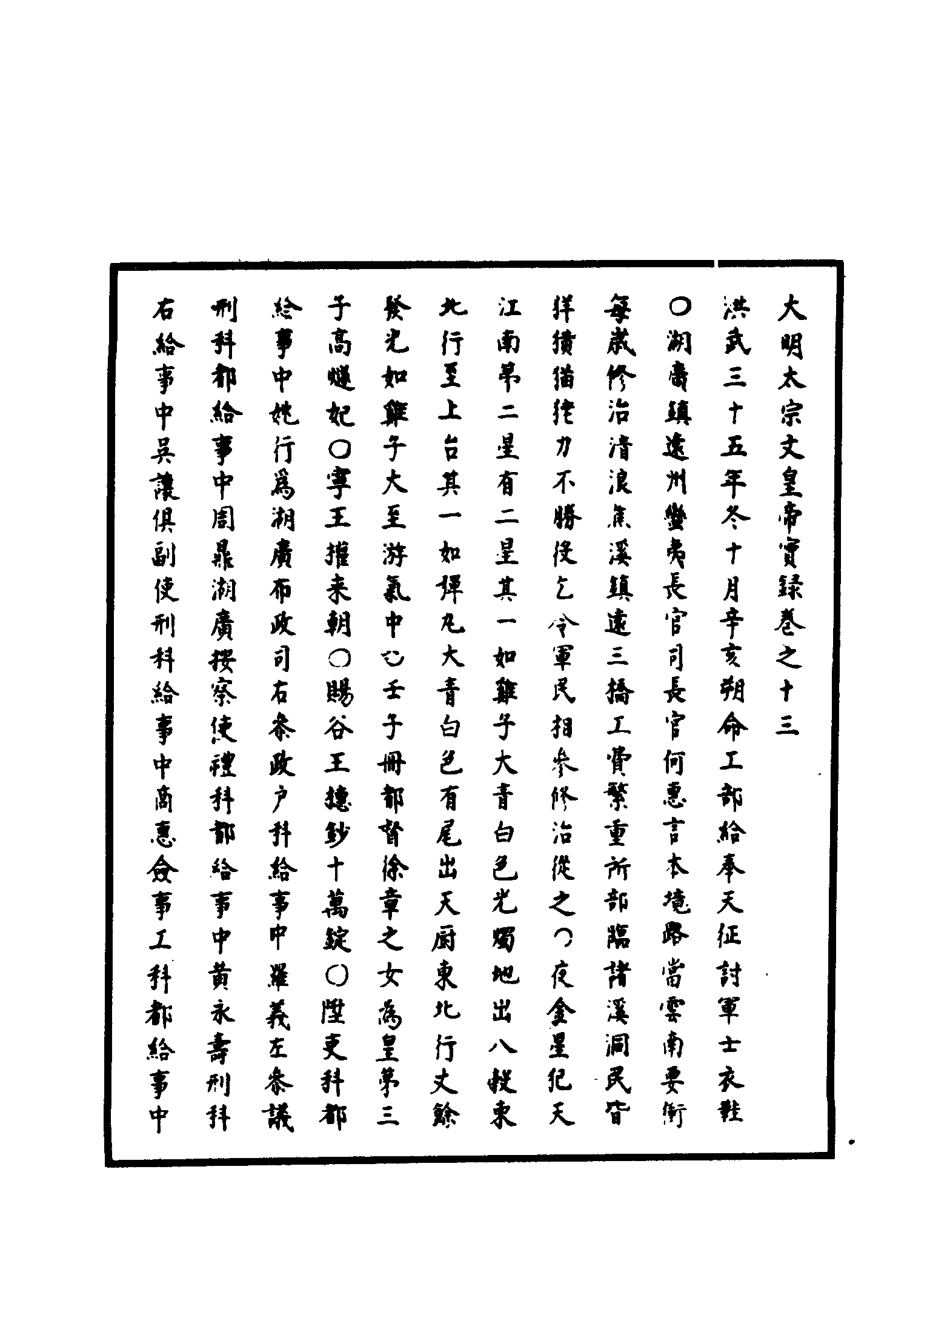 大明太宗文皇帝實録巻之十三
洪武三十五年冬十月辛亥朔命工部給奉天征討軍士衣鞋
〇湖廣鎮遠州蠻夷長官司長官何惠言本境路當雲南要衝
每歲修治清浪焦溪鎮遠三橋工費繁重所部臨諸溪洞民皆
獞獠猫狫力不勝役乞令軍民相參修治從之〇夜金星犯天
江南第二星有二星其一如雞子大青白色光燭地出八穀東
北行至上台其一如彈丸大青白色有尾出天廚東北行丈餘
發光如雞子大至游氣中〇壬子冊都督徐章之女為皇第三
子高燧妃〇寧王權来朝〇賜谷王橞鈔十萬錠〇陞吏科都
給事中姚行爲湖廣布政司右叅政户科給事中羅義左叅議
刑科都給事中周鼎湖廣按察使禮科都給事中黄永壽刑科
右給事中吳讓俱副使刑科給事中商惠僉事工科都給事中